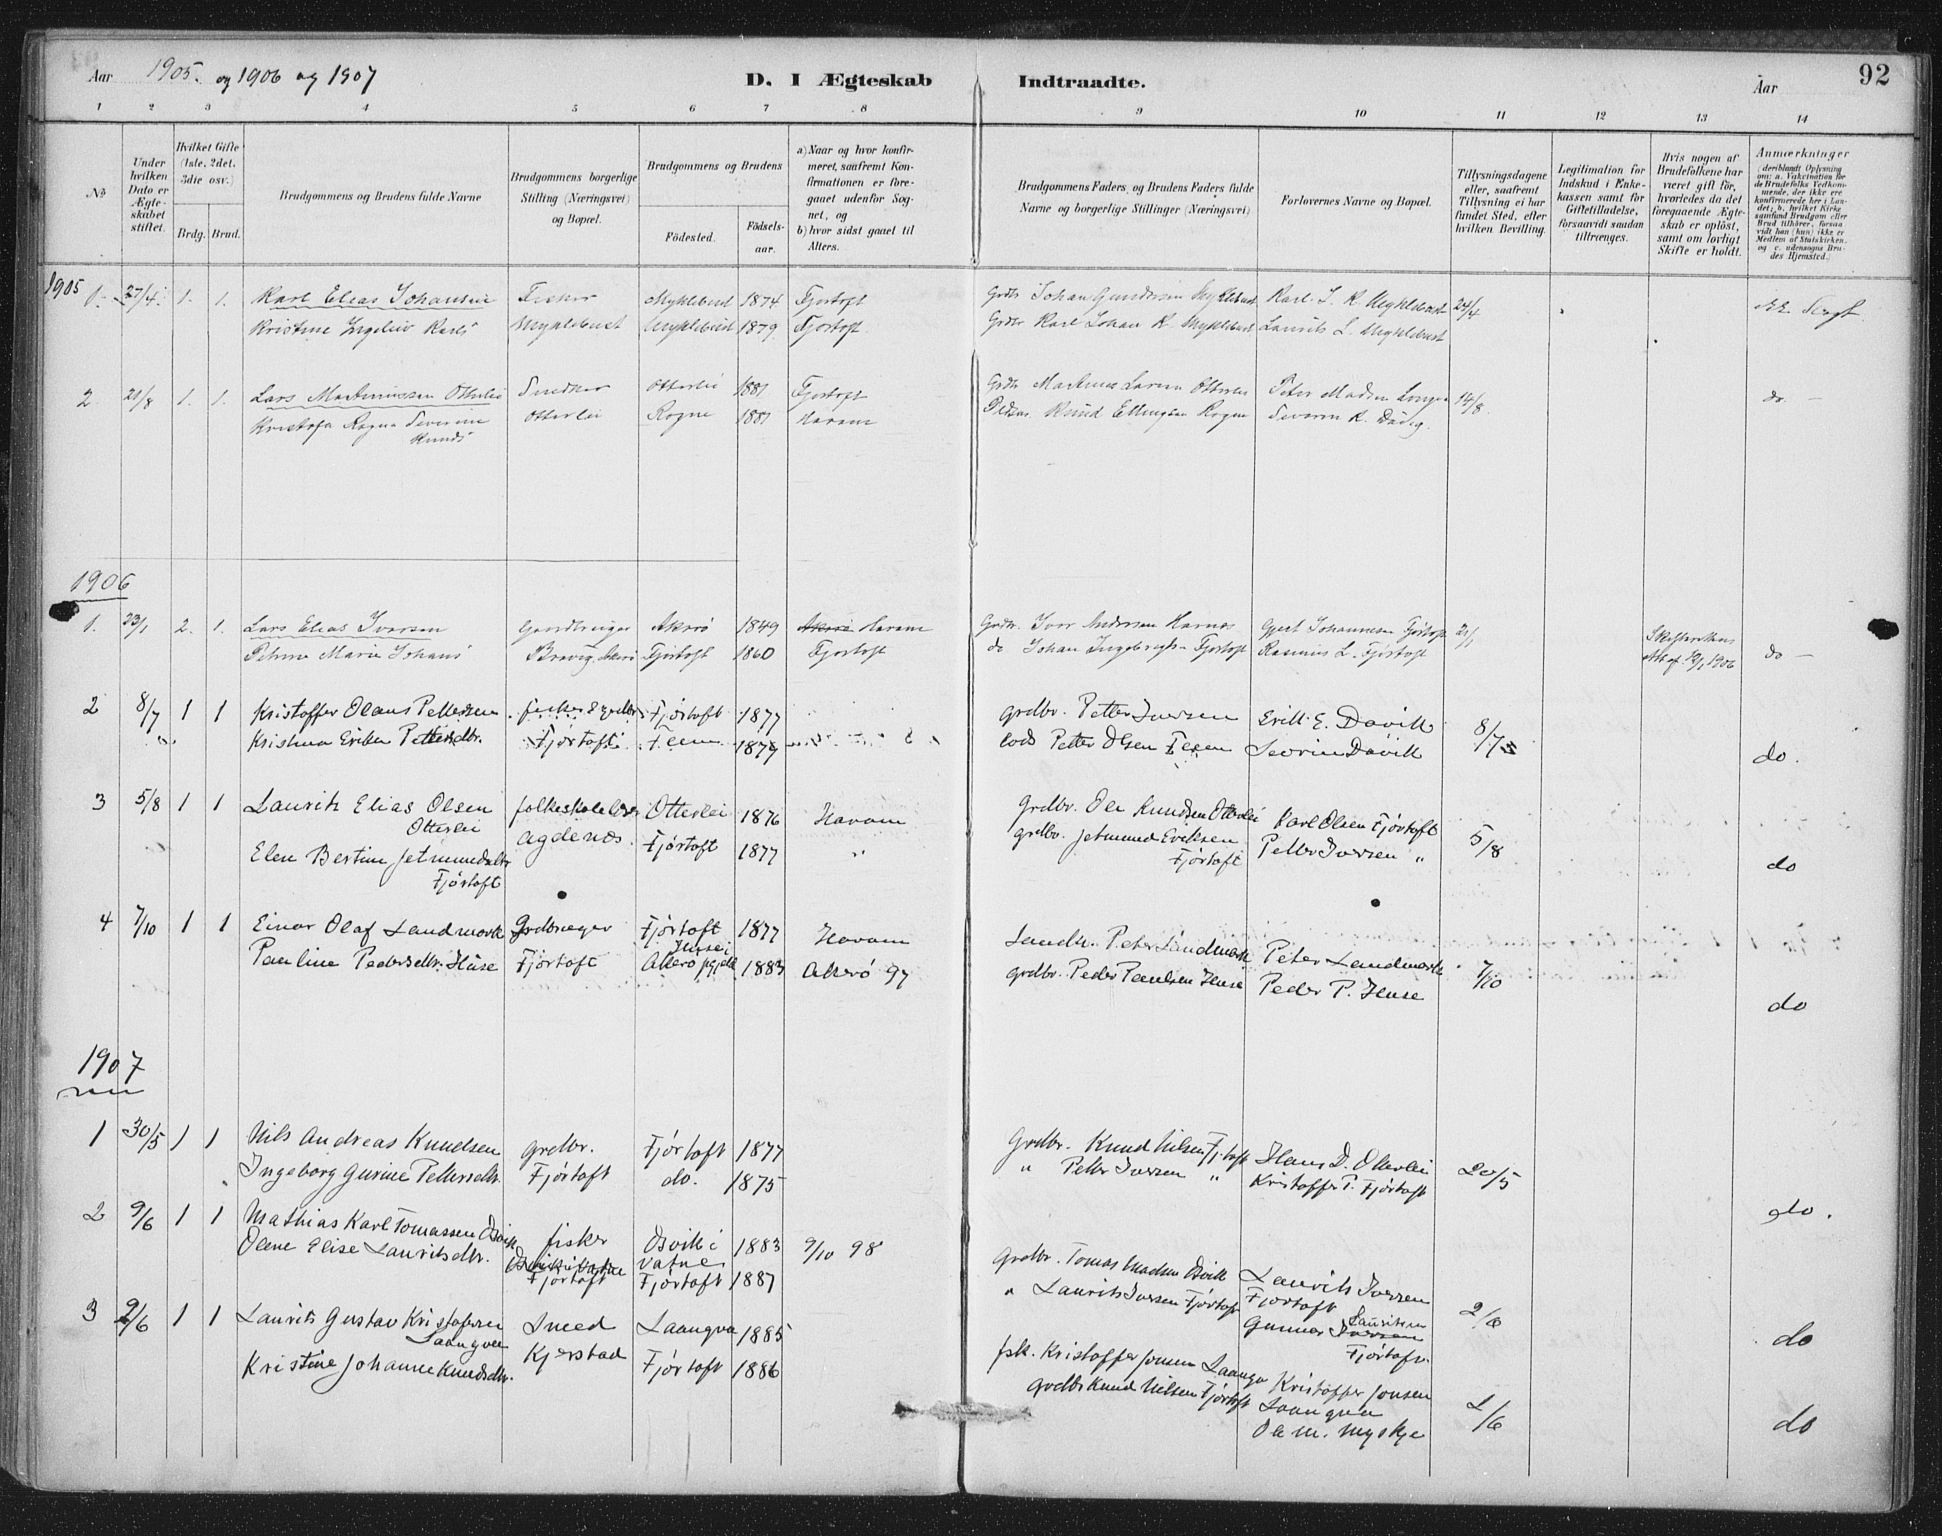 Aar 1905. og 1906 og 1907
D. I Ægteskab Indtraadte.
Aar
92
1 2 3 4 5 6 7 8 9 10 11 12 13 14
No
Under hvilken Dato er Ægteskabet stiftet.
Hvilket Gifte (1ste, 2det, 3die osv.)
Brdg. Brud.
Brudgommens og Brudens fulde Navne
Brudgommens borgerlige Stilling (Næringsvei) og Bopæl.
Brudgommens og Brudens
Fødested.
Fødselsaar.
a) Naar og hvor konfirmeret, saafremt Konfirmationen er foregaaet udenfor Sognet, og
b) hvor sidst gaaet til Alters.
Brudgommens Faders, og Brudens Faders fulde Navne og borgerlige Stillinger (Næringsvei)
Forlovernes Navne og Bopæl.
Tillysningsdagene eller, saafremt Tillysning ei har fundet Sted, efter hvilken Bevilling.
Legitimation for Indskud i Enkekassen samt for Giftetilladelse, forsaavidt saadan tiltrænges.
Hvis nogen af Brudefolkene har været gift før, hvorledes da det foregaaende Ægteskab er opløst, samt om lovligt Skifte er holdt.
Anmærkninger (deriblandt Oplysning om: a. Vakcination for de Brudefolks Vedkommende, der ikke ere konfirmerede her i Landet; b. hvilket Kirkesamfund Brudgom eller Brud tilhører, forsaavidt han (hun) ikke er Medlem af Statskirken, og c. udensogns Brudes Hjemsted.)
1905
1. 27/4. 1. 1. Karl Elias Johansen Fisker Myklebust 1874 Fjørtoft Grdbr Johan Gundersen Myklebust Karl J. K. Myklebust 24/4
Kristine Ingeliv Karls Myklebust Myklebust 1879. Fjørtoft Grdbr Karl Johan K. Myklebust Laurits L. Myklebust
2 21/8 1. 1. Lars Martinussen Otterlei Snedker Otterlei 1881 Fjørtoft Grdbr Martinus Larsen Otterlei Peter Madsen 14/8. do. —
Kristofa Ragna Severine Knuds Otterlei Rogne 1881 Haram Knud Ellingsen Rogne Severin K. Davig.
1906
1. 23/1 2. 1. Lars Elias Iversen Gaardbruger Akerø 1849 Akerø Haram Grdbr. Iver Andersen Harnes Gjert Johannesen Fjørtoft 21/1 do —
Petrine Marie Johans Akerø Fjørtoft 1860 Fjørtoft do Johan Ingebrigts- Fjørtoft Rasmus L. Fjørtoft 12/1 1906
2 8/7 1 1 Kristoffer Olaus Pettersen fisker & grdbr. Fjørtoft 1877 grdbr. Petter Iversen Erik E. Davik 8/7
Kristina Petersdtr. Fjørtoft Flem 1879 lods Petter Olsen Flem Sevrin Davik do.
3 5/8 1 1 Laurits Elias Olsen Otterlei folkeskolelærer Otterlei 1876 Haram grdbr. Ole Knudsen Otterlei Karl Olsen Fjørtoft 5/8
Elen Bertine Jetmundsdtr Fjørtoft Agdenes. Fjørtoft 1877 " grdbr. Jetmund Eriksen Fjørtoft Petter Iversen " do
4 7/10 1 1 Einar Olaf Landmark Grdbruger Fjørtoft 1877 Haram Landh. Peter Landmark Peter Landmark 7/10
Pauline Pedersdtr. Huse Fjørtoft Huse i Akerø pgjeld 1883 Akerø 97 grdbr. Peder Paulsen Huse Peder P. Huse do
1907
1 30/5 1 1 Nils Andreas Knudsen grdbr. Fjørtoft 1877 Grdbr. Knud Nilsen Fjørtoft Hans D. Otterlei 20/5
Ingeborg Gurine Pettersdtr. Fjørtoft do. 1875 " Petter Iversen " Kristoffer P. Fjørtoft do.
2 9/6 1 1 Mathias Karl Tomassen Øsvik fisker Øsvik i Vatne 1883 9/10 98 Grdbr. Tomas Madsen Øsvik Laurits Iversen Fjørtoft 2/6
Olene Elise Lauritsdtr. Fjørtoft Fjørtoft 1887 " Laurits Iversen Fjørtoft Gunnar Iversen Lauritsen Fjørtoft. do
3 9/6 1 1 Laurits Gustav Kristofersen Laangva Smed Laangva 1885 fsk. Kristoffer Jonsen Laangva Kristoffer Jonsen Laangva 2/6
Kristine Johanne Knudsdtr. Kjerstad Fjørtoft 1886 grdbr Knud Nilsen Fjørtoft Ole M. Myskje do